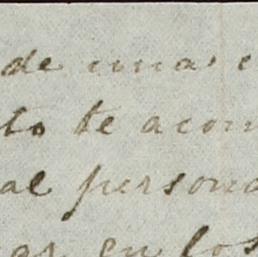 de una c
to te acom
al persona
ar en los